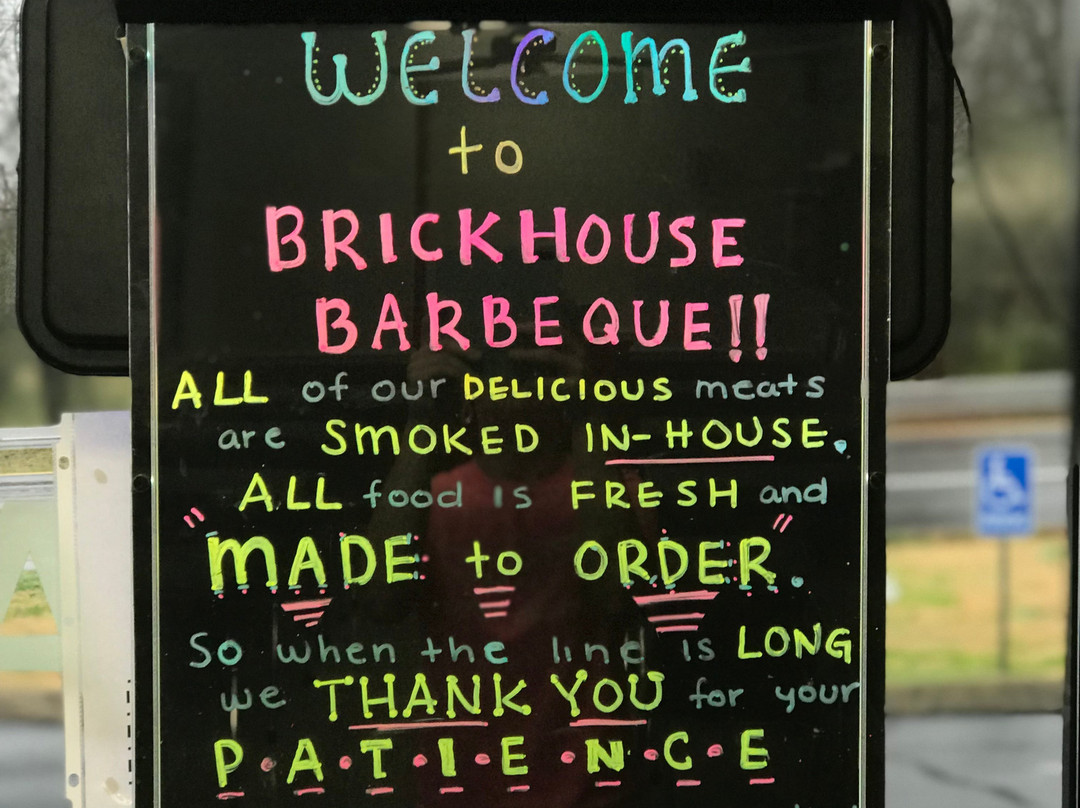 WELCOME
to
BRICKHOUSE
BARBEQUE!!
ALL of our DELICIOUS meats
are SMOKED IN-HOUSE.
ALL food is FRESH and
"MADE to ORDER".
So when the line is LONG
we THANK YOU for your
P•A•T•I•E•N•C•E